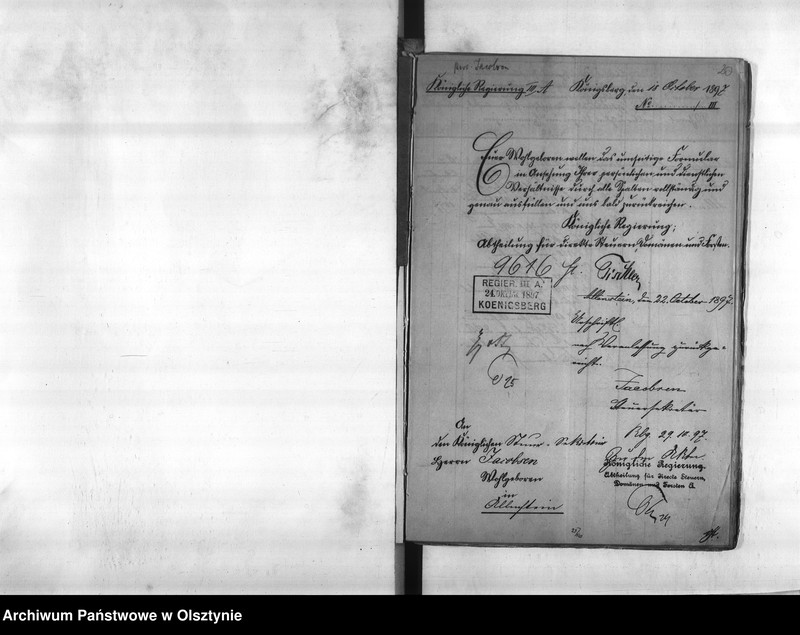 pers. Jacobsen
Königliche Regierung III A. Königsberg den 11 October 1897
No / III
Euer Wohlgeboren wollen das umseitige Formular
in Ansehung Ihrer persönlichen und dienstlichen
Verhältnisse durch alle Spalten vollständig und
genau ausfüllen und uns bald zurückreichen.
Königliche Regierung;
Abtheilung für direkte Steuern, Domänen und Forsten.
9616
REGIER. III A.
24. OKTOBR 1897
KOENIGSBERG
Allenstein, den 22. October 1897.
Urschriftl.
nach Veranlassung zurückge-
reicht.
Jacobsen
Steuersekretär
An
den Königlichen Steuer-Sekretär
Herrn Jacobsen
Wohlgeboren
in
Allenstein
Kbg. 29.10.97.
Zu den Akten
Königliche Regierung.
Abtheilung für directe Steuern,
Domänen und Forsten A.
Archiwum Państwowe w Olsztynie